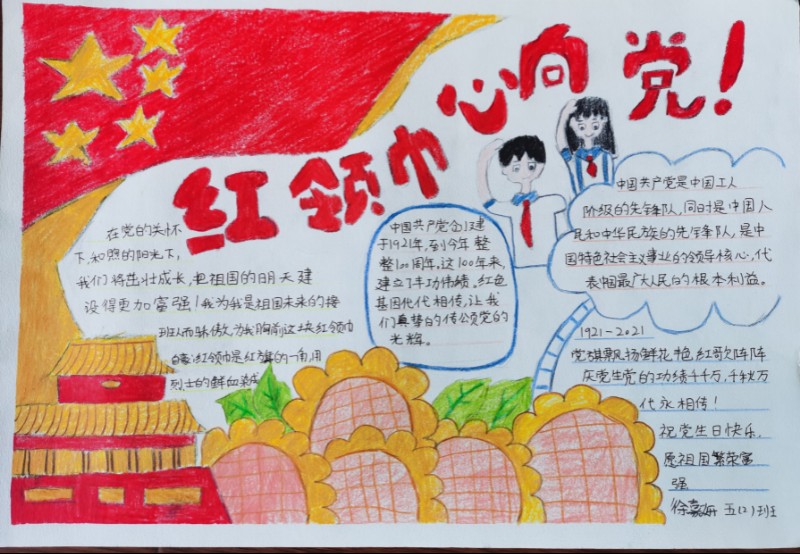 红领巾心向党!
在党的关怀
下,和煦的阳光下,
我们将茁壮成长,把祖国的明天建
设得更加富强!我为我是祖国未来的接
班人而骄傲,为我胸前这块红领巾
自豪!红领巾是红旗的一角,用
烈士的鲜血染成
中国共产党创建
于1921年,到今年整
整100周年,这100年来,
建立了丰功伟绩。红色
基因代代相传,让我
们真挚的传颂党的
光辉。
中国共产党是中国工人
阶级的先锋队,同时是中国人
民和中华民族的先锋队,是中
国特色社会主义事业的领导核心,代
表中国最广大人民的根本利益。
1921-2021
党旗飘扬鲜花艳,红歌阵阵
庆党生党的功绩千千万,千秋万
代永相传!
祝党生日快乐,
愿祖国繁荣富
强
徐嘉妍 五(2)班